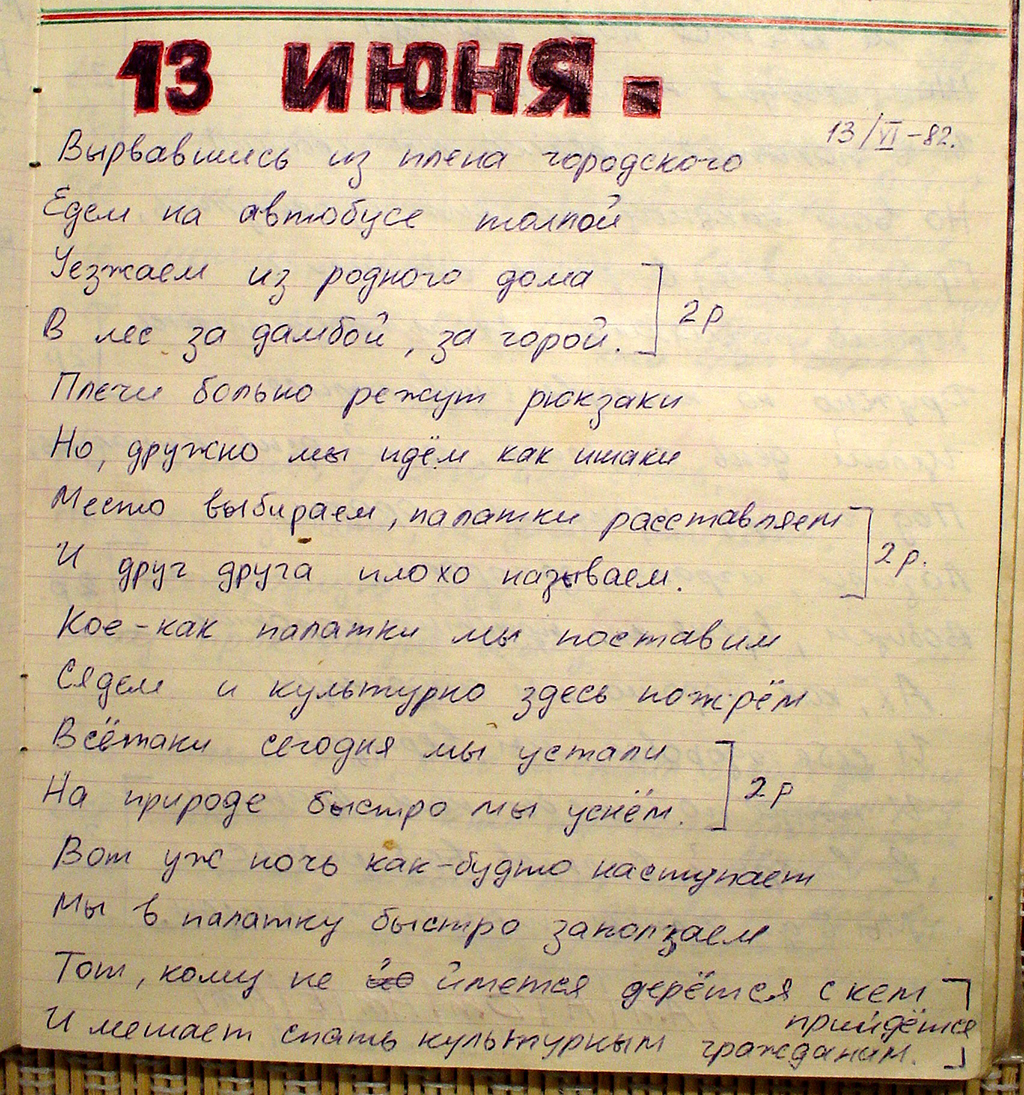 13 ИЮНЯ.
13/VI-82.
Вырвавшись из плена городского
Едем на автобусе толпой
Уезжаем из родного дома
В лес за дамбой, за горой.
2р
Плечи больно режут рюкзаки
Но, дружно мы идём как ишаки
Место выбираем, палатки расставляем
И друг друга плохо называем.
2р.
Кое-как палатки мы поставим
Сядем и культурно здесь пожрём
Всётаки сегодня мы устали
На природе быстро мы уснём.
2р
Вот уж ночь как-будто наступает
Мы в палатку быстро заползаем
Тот, кому не ймется дерётся с кем
прийдётся
И мешает спать культурным гражданам.